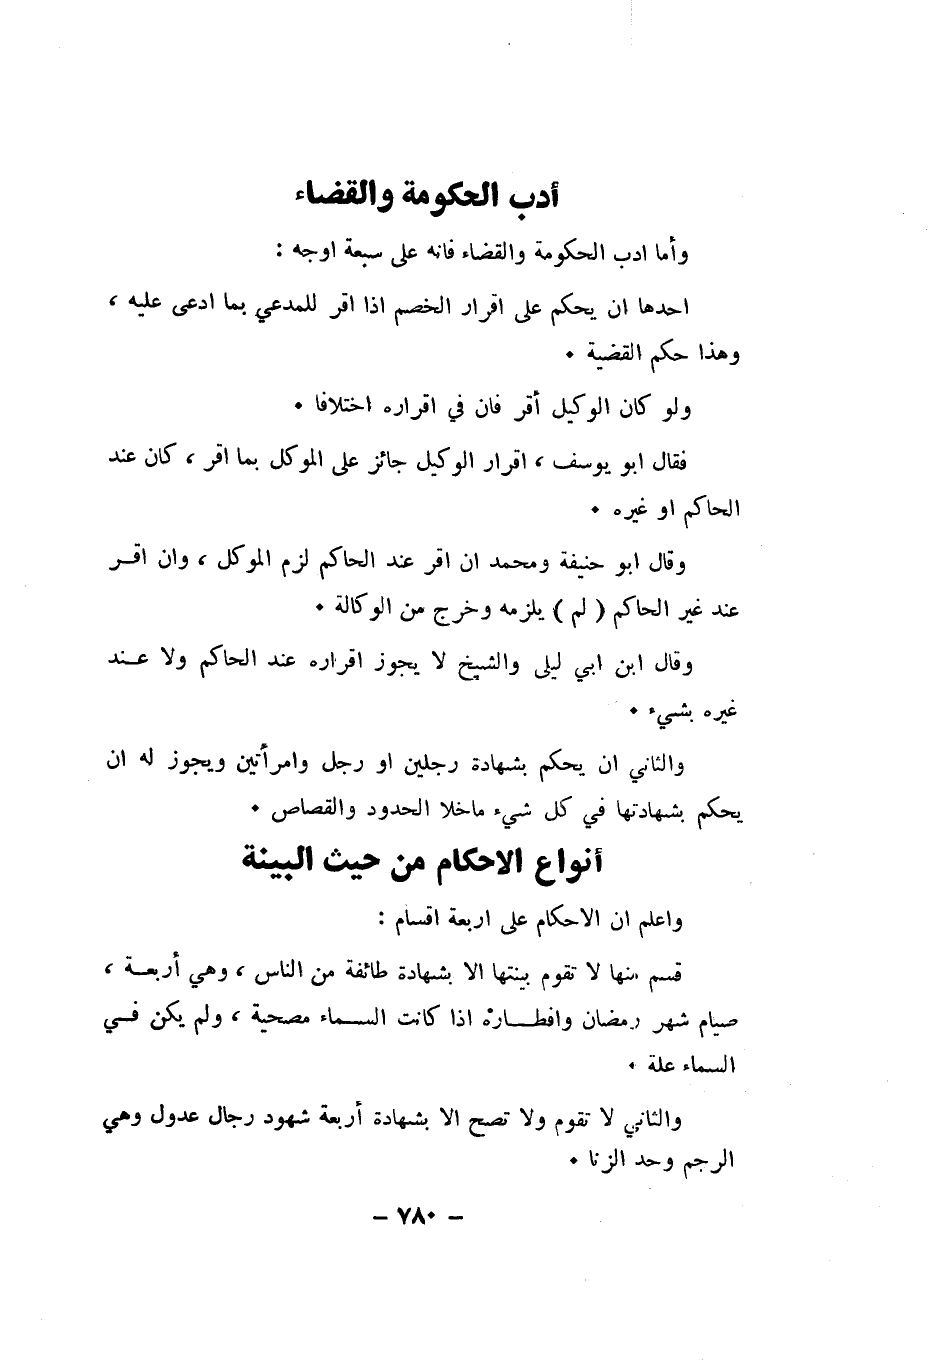 أدب الحكومة والقضاء
وأما ادب الحكومة والقضاء فانه على سبعة اوجه :
احدها ان يحكم على اقرار الخصم اذا اقر للمدعي بما ادعى عليه ،
وهذا حكم القضية ٠
ولو كان الوكيل أقر فان في اقراره اختلافا ٠
فقال ابو يوسف ، اقرار الوكيل جائز على الموكل بما اقر ، كان عند
الحاكم او غيره ٠
وقال ابو حنيفة ومحمد ان اقر عند الحاكم لزم الموكل ، وان اقـر
عند غير الحاكم ( لم ) يلزمه وخرج من الوكالة ٠
وقال ابن ابي ليلى والشيخ لا يجوز اقراره عند الحاكم ولا عـند
غيره بشيء ٠
والثاني ان يحكم بشهادة رجلين او رجل وامرأتين ويجوز له ان
يحكم بشهادتها في كل شيء ماخلا الحدود والقصاص ٠
أنواع الاحكام من حيث البينة
واعلم ان الاحكام على اربعة اقسام :
قسم منها لا تقوم بينتها الا بشهادة طائفة من الناس ، وهي أربعـة ،
صيام شهر رمضان وافطـــاره اذا كانت الســماء مصحية ، ولم يكن فـي
السماء علة ٠
والثاني لا تقوم ولا تصح الا بشهادة أربعة شهود رجال عدول وهي
الرجم وحد الزنا ٠
– ٧٨٠ –